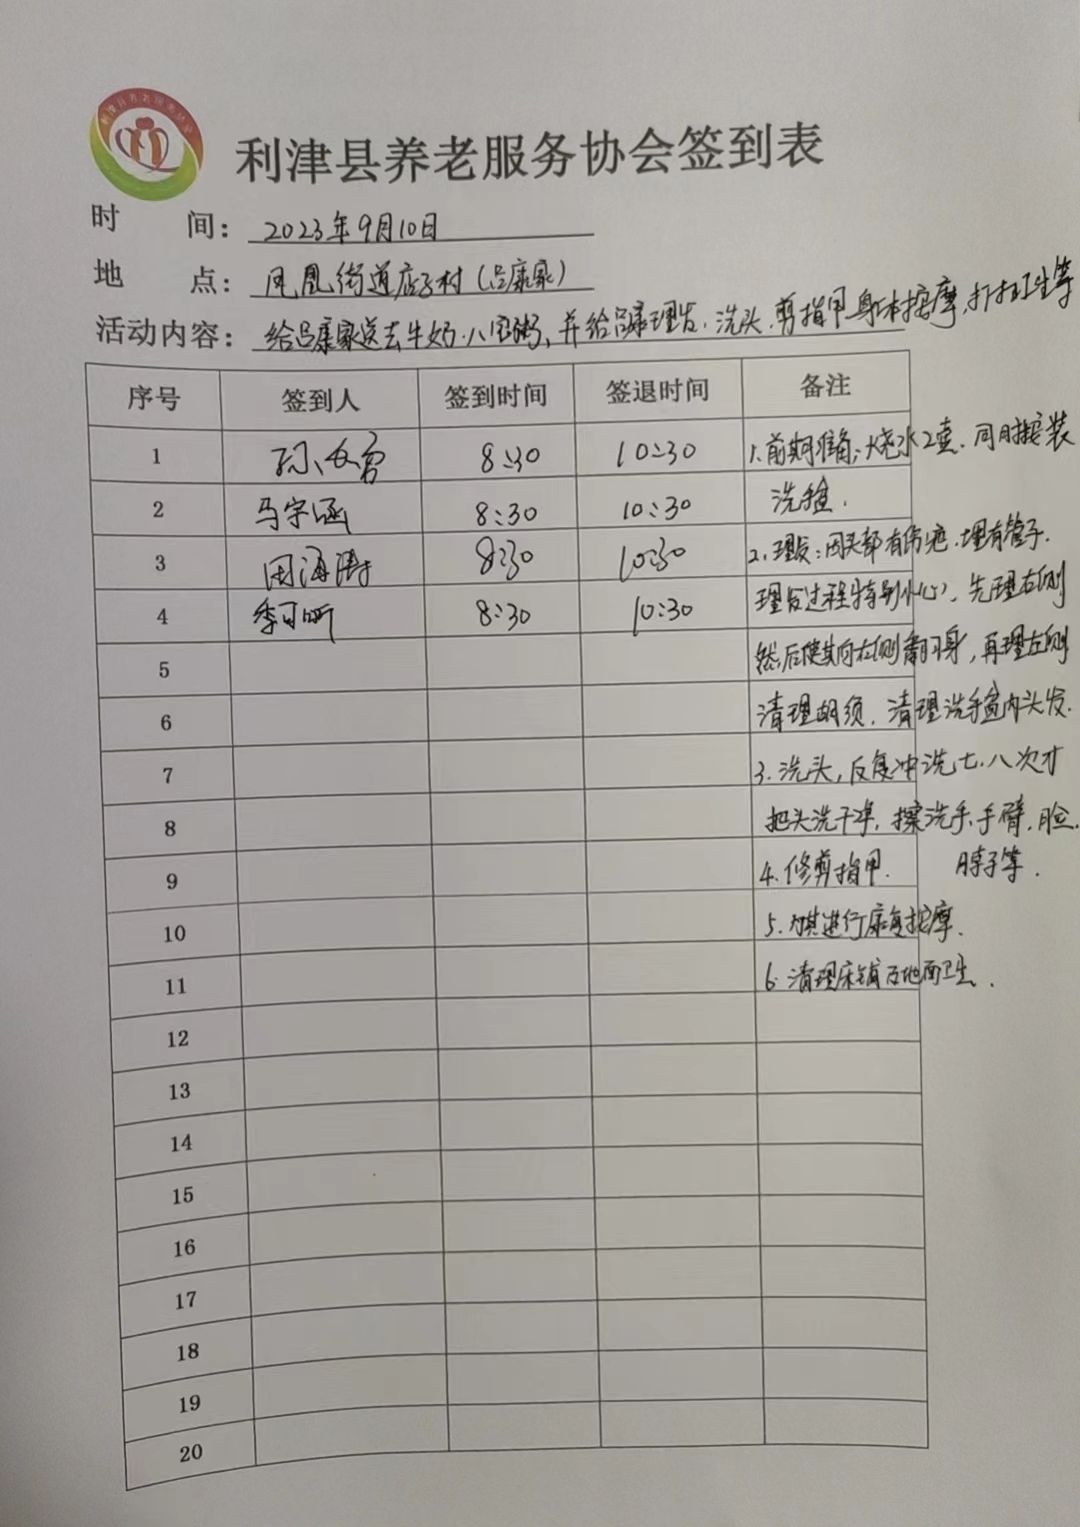 利津县养老服务协会签到表
时 间: 2023年9月10日
地 点: 凤凰街道店子村(吕康家)
活动内容: 给吕康家送去牛奶、八宝粥、并给吕康理发、洗头、剪指甲、身体按摩、打扫卫生等
序号 签到人 签到时间 签退时间 备注
1 8:30 10:30 1、前期准备:烧水2壶、同时按装
2 马宇涵 8:30 10:30 洗手盆.
3 田海涛 8:30 10:30 2、理发:因头部有伤疤、埋有管子.
4 季可昕 8:30 10:30 理发过程特别小心、先理右侧
5 然后使其向右侧翻身,再理左侧
6 清理胡须、清理洗手盆内头发.
7 3、洗头,反复冲洗七、八次才
8 把头洗干净,擦洗手、手臂、脸、
9 4、修剪指甲. 脖子等.
10 5、为其进行康复按摩.
11 6、清理床铺及地面卫生.
12
13
14
15
16
17
18
19
20